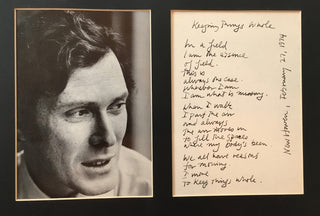 Keeping Things Whole
In a field
I am the absence
of field.
This is
always the case.
Wherever I am
I am what is missing.
When I walk
I part the air
and always
the air moves in
to fill the spaces
where my body's been
We all have reasons
for moving
I move
to keep things whole.
New Haven, February 21, 1974